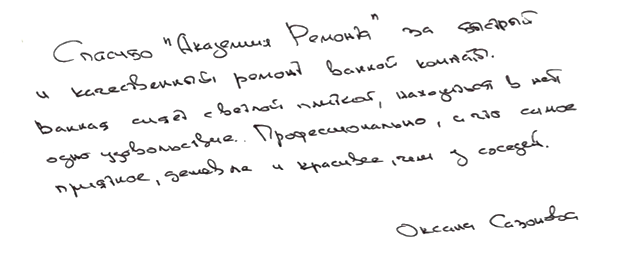 Спасибо "Академия Ремонта" за быстрый
и качественный ремонт ванной комнаты.
Ванная сияет светлой плиткой, находиться в ней
одно удовольствие. Профессионально, а что самое
приятное, дешевле и красивее, чем у соседей.
Оксана Сазонова